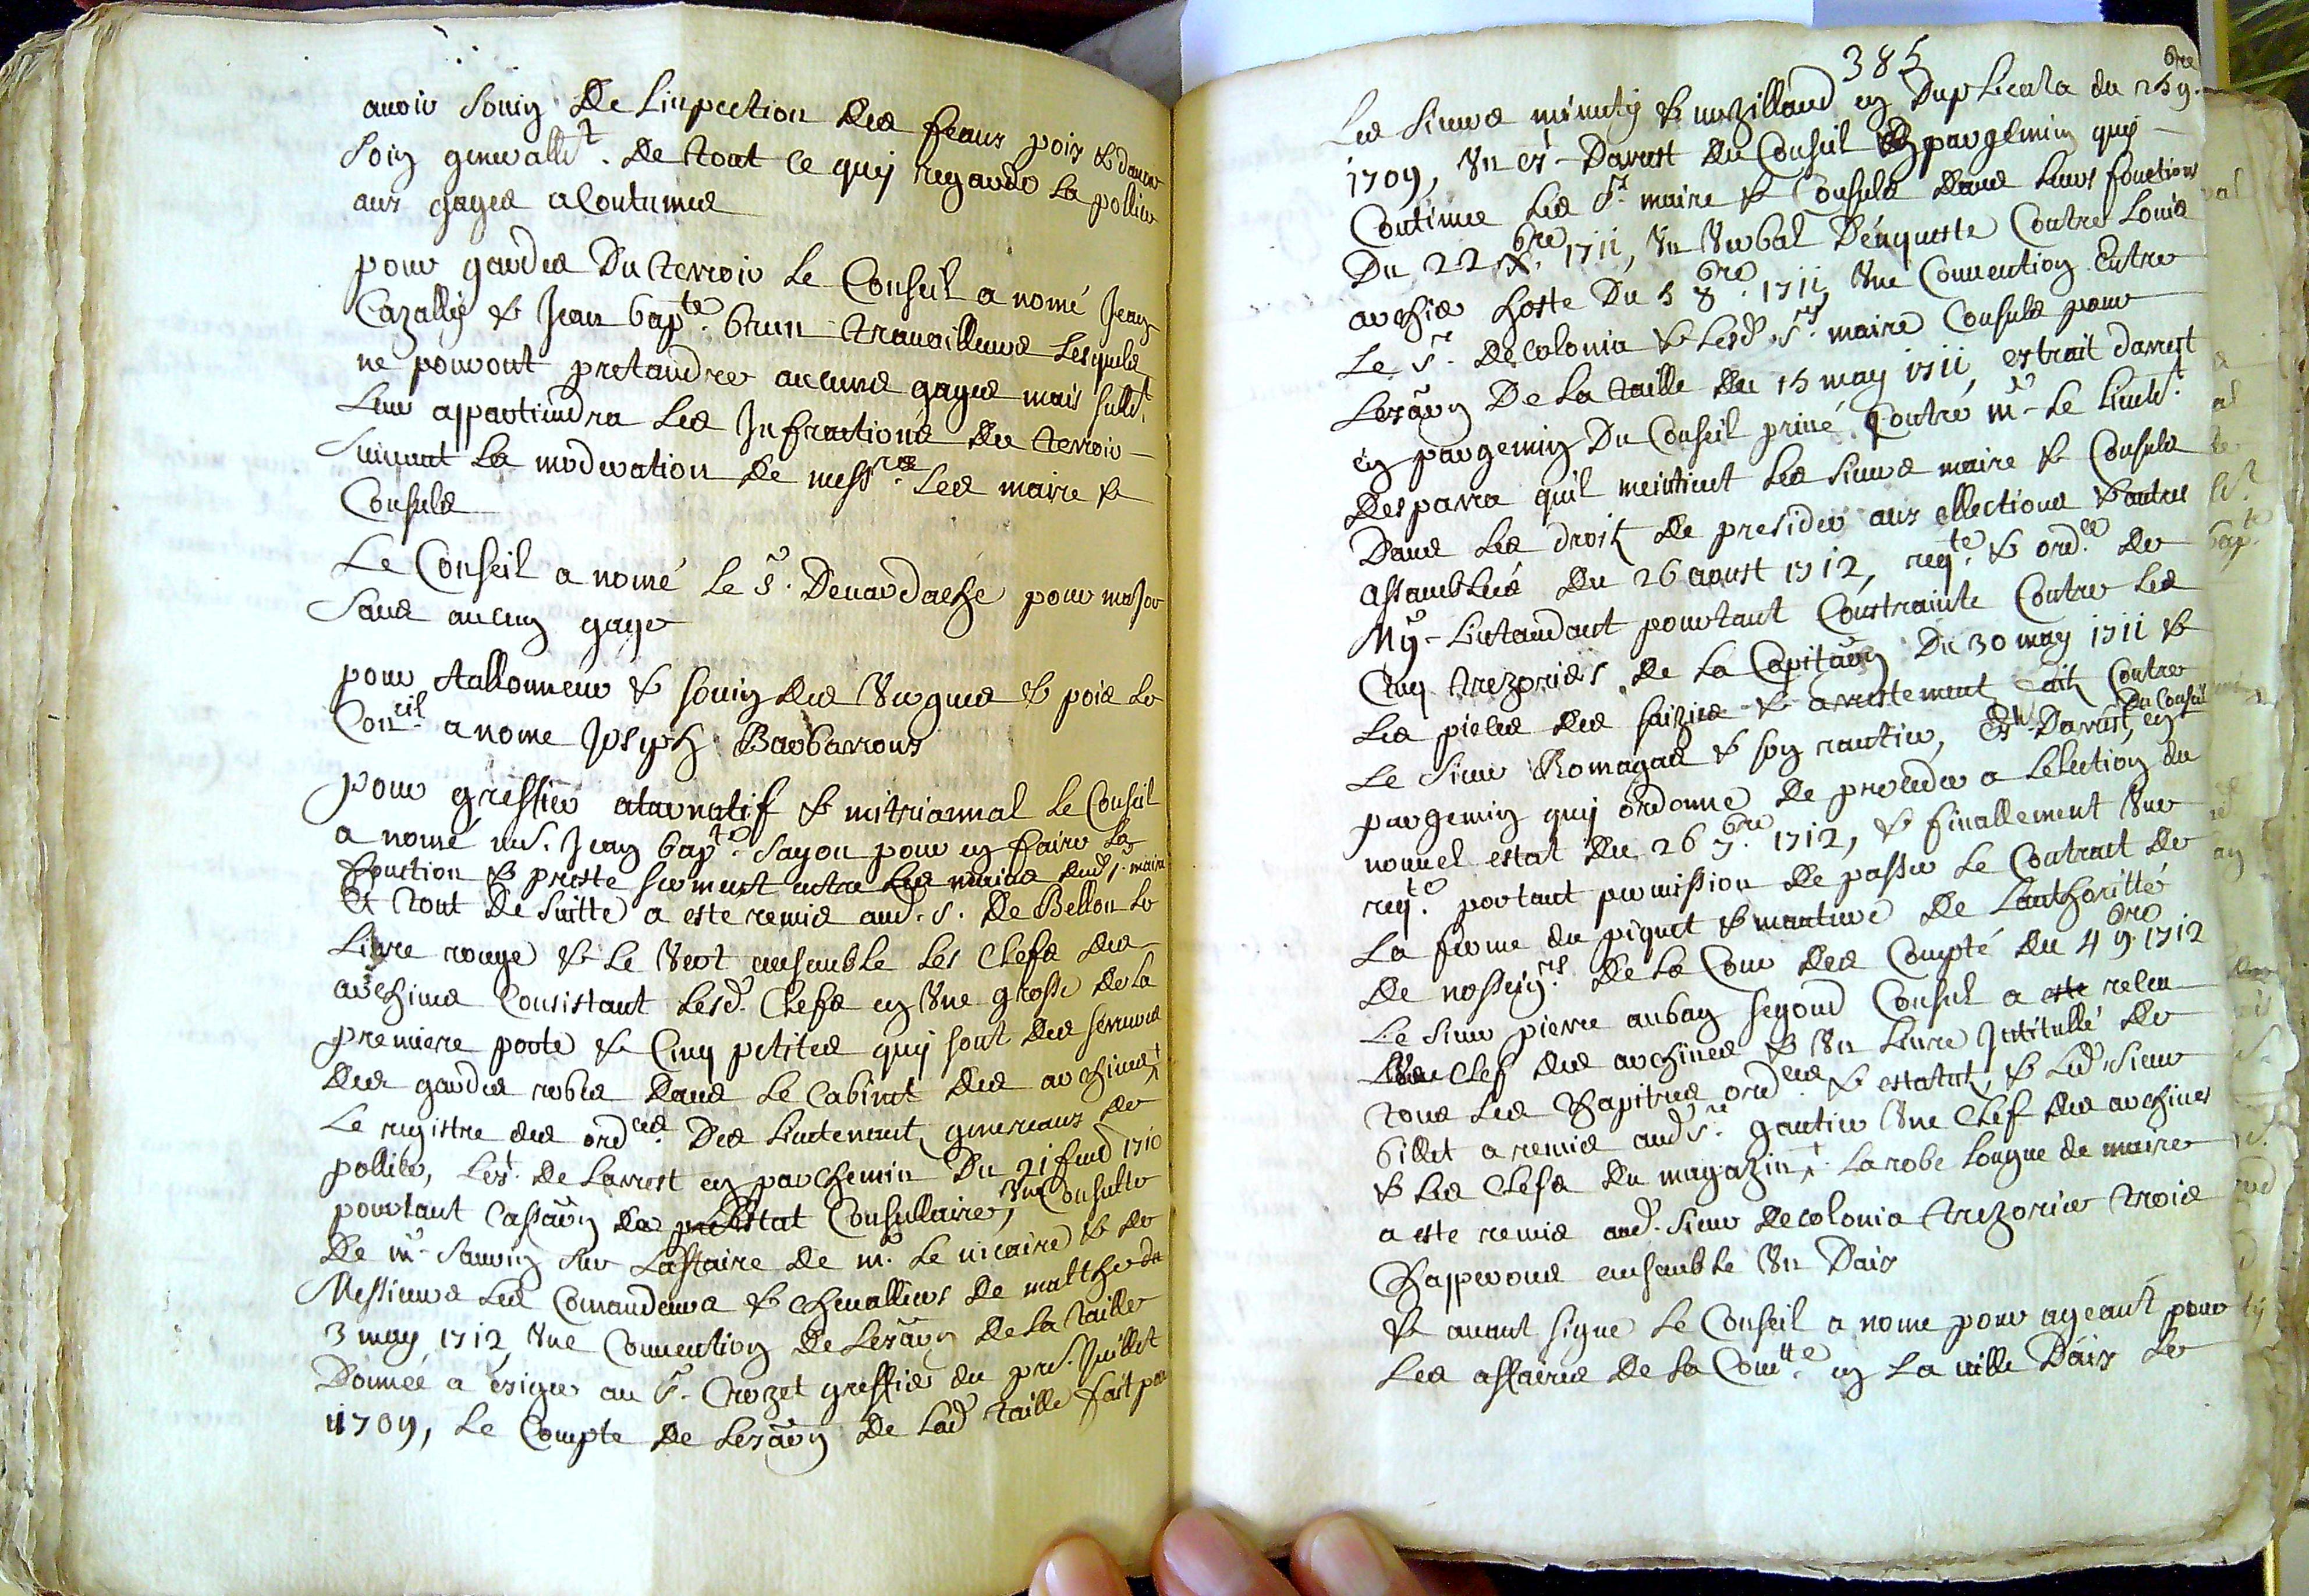 avoir soing De Linpection Des feaus pois & danree
Soin generallet. De tout ce quy regarde La pollice
aux gages acoutumes
pour gardes Du terroir Le Conseil a nomé Jean
Cazallis & Jean bapte. brun travailleurs Lesquels
ne pouront pretandre aucuns gages mais sullet.
Leur appartiendra Les Infractions du terroir
Suivant La moderation de messrs. Les maire &
Consuls
Le Conseil a nomé le sr. Denardache pour major
Sans aucun gage
pour Aallonneur & soing des & pois Le
Conceil a nome Joseph Barbarroux
pour greffier atarnatif & mitriannal Le Conseil
a nomé me. Jean bapte. Sayou pour en faire La
fonction & preste serment entre Les mains dud s. maire
Et tout De Suitte a este remis aud. s. De Bellon Le
Livre rouge & Le Vert ensemble Les Clefs des
archives Consistant Lesd. Clefs en Vne grosse De la
premiere porte & Cinq petites quy sont des serrures
des gardes robes Dans Le Cabinet des archives
Le registre des ordces. Des Lieutenant generaux de
pollice, Lext. de Larrest en parchemin Du 21 1710
pourtant Cassaon de Lestat Consullaire, Vne Consulte
De mr. Sauvin sur Laffaire de mr. Le vicaire & de
Messieurs Les Comandeurs & Chevalliers de malthe du
3 may 1712, Vne Convention De Lexaon De La taille
Donnée a exiger au Sr. Crozet greffier du pr. Juillet
1709, Le Compte de Lexaon De Lad taille fait par
385
Les Sieurs minuty & mazilland en Duplicata du 25 9bre
1709, Vn ext Darrest du Conseil en pargemin quy
Continue Les Srs. maire & Consuls dans Leurs fonctions
Du 22 Xbre. 1711, Vn Verbal D'enqueste Contre Louis
archis hoste Du 5 8bre. 1711, Vne Convention Entre
Le Sr. De Colonia & Lesd. Srs. maire Consuls pour
Lexaon De La taille du 15 may 1711, extrait darrest
en pargemin Du Conseil privé Contre mr. Le Lieutet.
Desparra quil meintient Les Sieurs maire & Consuls
Dans Les droits de presider aux ellections & autres
assamblées du 26 aoust 1712, reqte. & ordce de
Mgr. Lintandant pourtant Constrainte Contre Les
Cinq trezoriers de La Capitaon Du 30 may 1711 &
Les pieces des saizies & arrestement fait Contre
Le Sieur Romagan & son rantier, Ext Darrest, du Conseil en
pargemin quy ordonne De proceder a Lelection du
nouvel estat du 26 7bre. 1712, & finallement Vne
reqte. portant permission De passer Le Contract de
La ferme du piquet & mouture De Lauthoritté
De nosseigrs. De La Cour des Compté du 4 9bre 1712
Le Sieur pierre auban segond Consul a este releu
Vne Clef des archives & Vn Livre Jntitullé de
tous Les Chapitres ordces. & estatuts, & Led Sieur
billet a remis aud Sr. gautier Vne Clef des archives
& Les Clefs Du magazin. La robe Longue de maire
a este remis aud. Sieur De Colonia trezorier trois
Chapperons ensamble Vn Dais
& avant signé Le Conseil a nome pour ageant pour
Les affaires De La Comtte. en La ville Daix Le